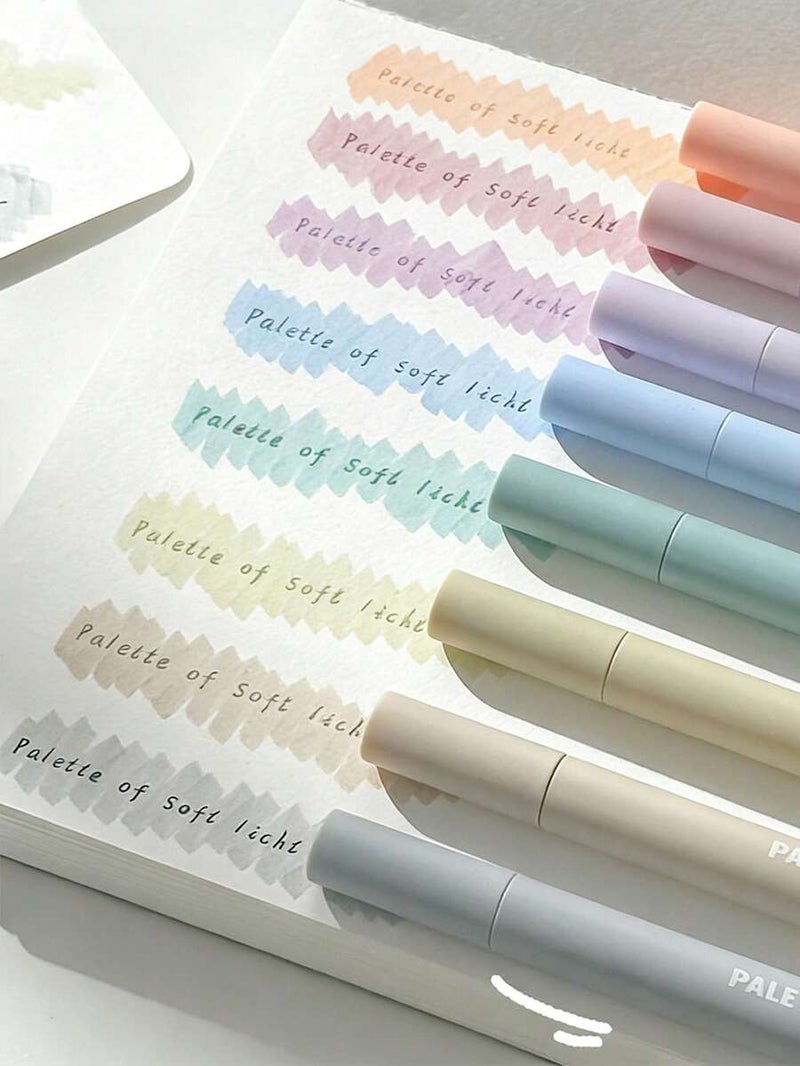 Palette of soft licht
Palette of soft licht
Palette of soft licht
Palette of soft licht
Palette of soft licht
Palette of soft licht
Palette of soft lich
Palette of soft licht
PA
PALE